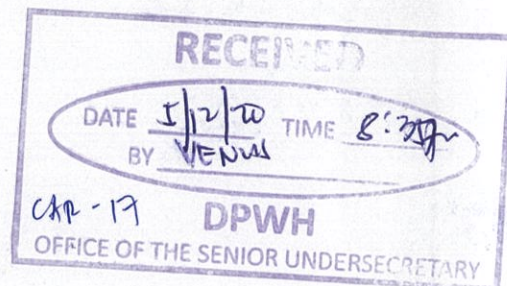 RECEIVED
DATE 5/12/20 TIME 8:35
BY VENUS
CAR-17
DPWH
OFFICE OF THE SENIOR UNDERSECRETARY